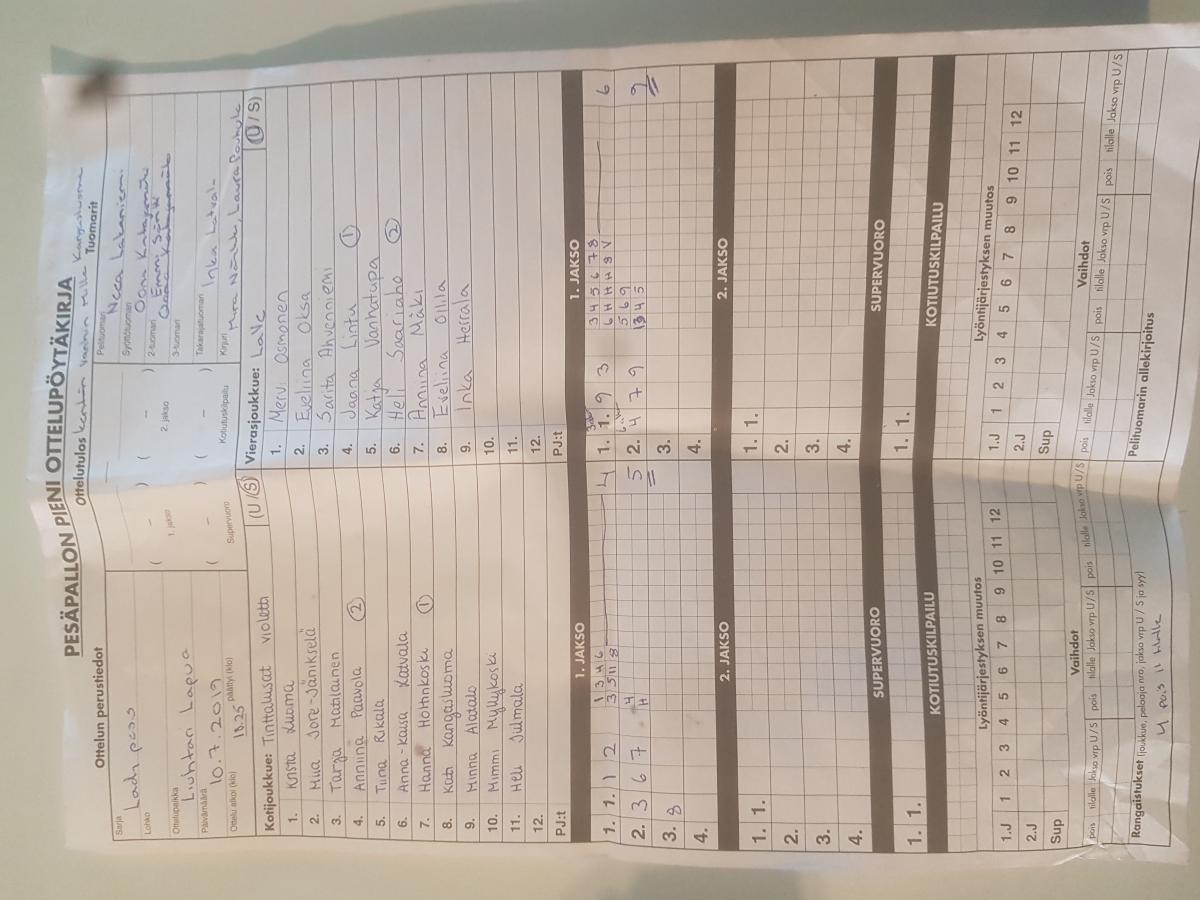 PESÄPALLON PIENI OTTELUPÖYTÄKIRJA
Ottelun perustiedot
Ottelutulos
Tuomarit
Sarja
Lohko
Ottelupaikka Liuhtari Lapua
Päivämäärä 10.7.2019
Ottelu alkoi (klo) 18.25 päättyi (klo)
( - ) 1. jakso
( - ) 2. jakso
( - ) Supervuoro
( - ) Kotiutuskilpailu
Pelituomari
Syöttötuomari
2-tuomari
Emmi
3-tuomari
Takarajatuomari Inka
Kirjuri
Kotijoukkue: Tinttalusat violetti (U/S)
1. Krista Luoma
2. Miia Jore-Jänikselä
3. Tarja Matilainen
4. Anniina Paavola 2
5. Tiina Rikala
6. Anna-Kaisa Katvala
7. Hanna Hohtinkoski 1
8. Kati Kangasluoma
9. Minna Alatalo
10. Mimmi Myllykoski
11. Heli Julmala
12.
PJ:t
Vierasjoukkue: LaVe (U/S)
1. Mervi Osmonen
2. Eveliina Oksa
3. Sarita Ahvenniemi
4. Jaana Lintu 1
5. Katja Vanhatupa
6. Heli Saariaho 2
7. Anniina Mäki
8. Eveliina Ollila
9. Inka Herrala
10.
11.
12.
PJ:t
1. JAKSO
1. 1. 1 2 1 3 4 6 4
3 5 11 8
2. 3 6 7 4 5
H
3. 8
4.
1. JAKSO
1. 1. 9 3 3 4 5 6 7 8 6
6 H H H 8 V
2. 4 7 9 5 6 9 9
4 5
3.
4.
2. JAKSO
1. 1.
2.
3.
4.
2. JAKSO
1. 1.
2.
3.
4.
SUPERVUORO
1. 1.
SUPERVUORO
1. 1.
KOTIUTUSKILPAILU
KOTIUTUSKILPAILU
Lyöntijärjestyksen muutos
1.J 1 2 3 4 5 6 7 8 9 10 11 12
2.J
Sup
Lyöntijärjestyksen muutos
1.J 1 2 3 4 5 6 7 8 9 10 11 12
2.J
Sup
Vaihdot
pois tilalle Jakso vrp U/S pois tilalle Jakso vrp U/S pois tilalle Jakso vrp U/S
Vaihdot
pois tilalle Jakso vrp U/S pois tilalle Jakso vrp U/S pois tilalle Jakso vrp U/S
Rangaistukset (joukkue, pelaaja nro, jakso vrp U / S ja syy)
4 pois 11 tilalle
Pelituomarin allekirjoitus